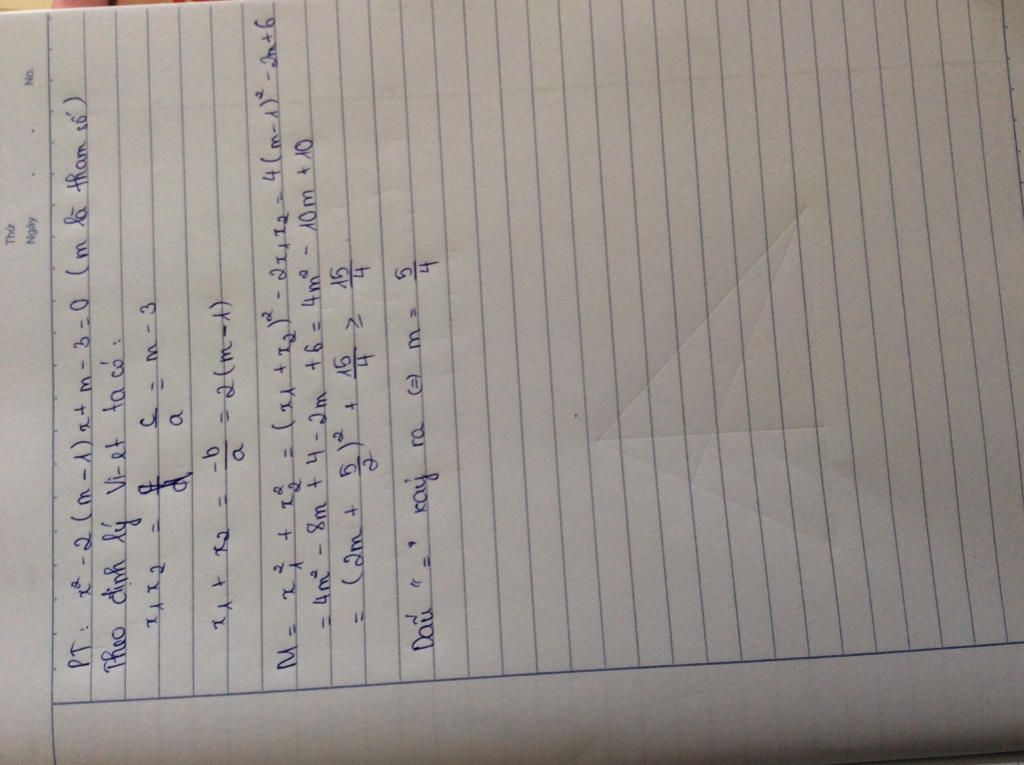 Thứ
Ngày . . No.
PT : x² - 2 (m - 1) x + m - 3 = 0 (m là tham số)
Theo định lý Vi-et ta có :
x₁ x₂ = c/a = m - 3
x₁ + x₂ = -b/a = 2 (m - 1)
M = x₁² + x₂² = (x₁ + x₂)² - 2x₁x₂ = 4(m-1)² - 2m+6
= 4m² - 8m + 4 - 2m + 6 = 4m² - 10m + 10
= (2m + 5/2)² + 15/4 ≥ 15/4
Dấu "=" xảy ra (=) m = 5/4